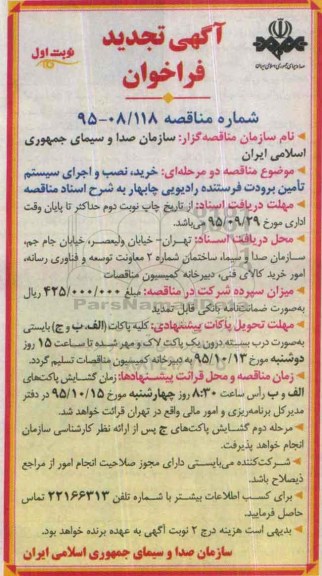 آگهی تجدید
فراخوان
نوبت اول
صدا و سیمای جمهوری اسلامی ایران
شماره مناقصه ۹۵-۰۸/۱۱۸
نام سازمان مناقصه‌گزار: سازمان صدا و سیمای جمهوری
اسلامی ایران
موضوع مناقصه دو مرحله‌ای: خرید، نصب و اجرای سیستم
تأمین برودت فرستنده رادیویی چابهار به شرح اسناد مناقصه
مهلت دریافت اسناد: از تاریخ چاپ نوبت دوم حداکثر تا پایان وقت
اداری مورخ ۹۵/۰۹/۲۹ می‌باشد.
محل دریافت اسناد: تهران- خیابان ولیعصر، خیابان جام جم،
سازمان صدا و سیما، ساختمان شماره ۲ معاونت توسعه و فناوری رسانه،
امور خرید کالای فنی، دبیرخانه کمیسیون مناقصات
میزان سپرده شرکت در مناقصه: مبلغ ۴۲۵/۰۰۰/۰۰۰ ریال
به‌صورت ضمانتنامه بانکی قابل تمدید
مهلت تحویل پاکات پیشنهادی: کلیه پاکات (الف، ب و ج) بایستی
به‌صورت درب بسته درون یک پاکت لاک و مهر شده تا ساعت ۱۵ روز
دوشنبه مورخ ۹۵/۱۰/۱۳ به دبیرخانه کمیسیون مناقصات تسلیم گردد.
زمان مناقصه و محل قرائت پیشنهادها: زمان گشایش پاکت‌های
الف و ب رأس ساعت ۸:۳۰ روز چهارشنبه مورخ ۹۵/۱۰/۱۵ در دفتر
مدیرکل برنامه‌ریزی و امور مالی واقع در تهران قرائت خواهد شد.
مرحله دوم گشایش پاکت‌های ج پس از ارائه نظر کارشناسی سازمان
انجام خواهد پذیرفت.
شرکت‌کننده می‌بایستی دارای مجوز صلاحیت انجام امور از مراجع
ذیصلاح باشد.
برای کسب اطلاعات بیشتر با شماره تلفن ۲۲۱۶۶۳۱۳ تماس
حاصل فرمایید.
بدیهی است هزینه درج ۲ نوبت آگهی به عهده برنده خواهد بود.
سازمان صدا و سیمای جمهوری اسلامی ایران